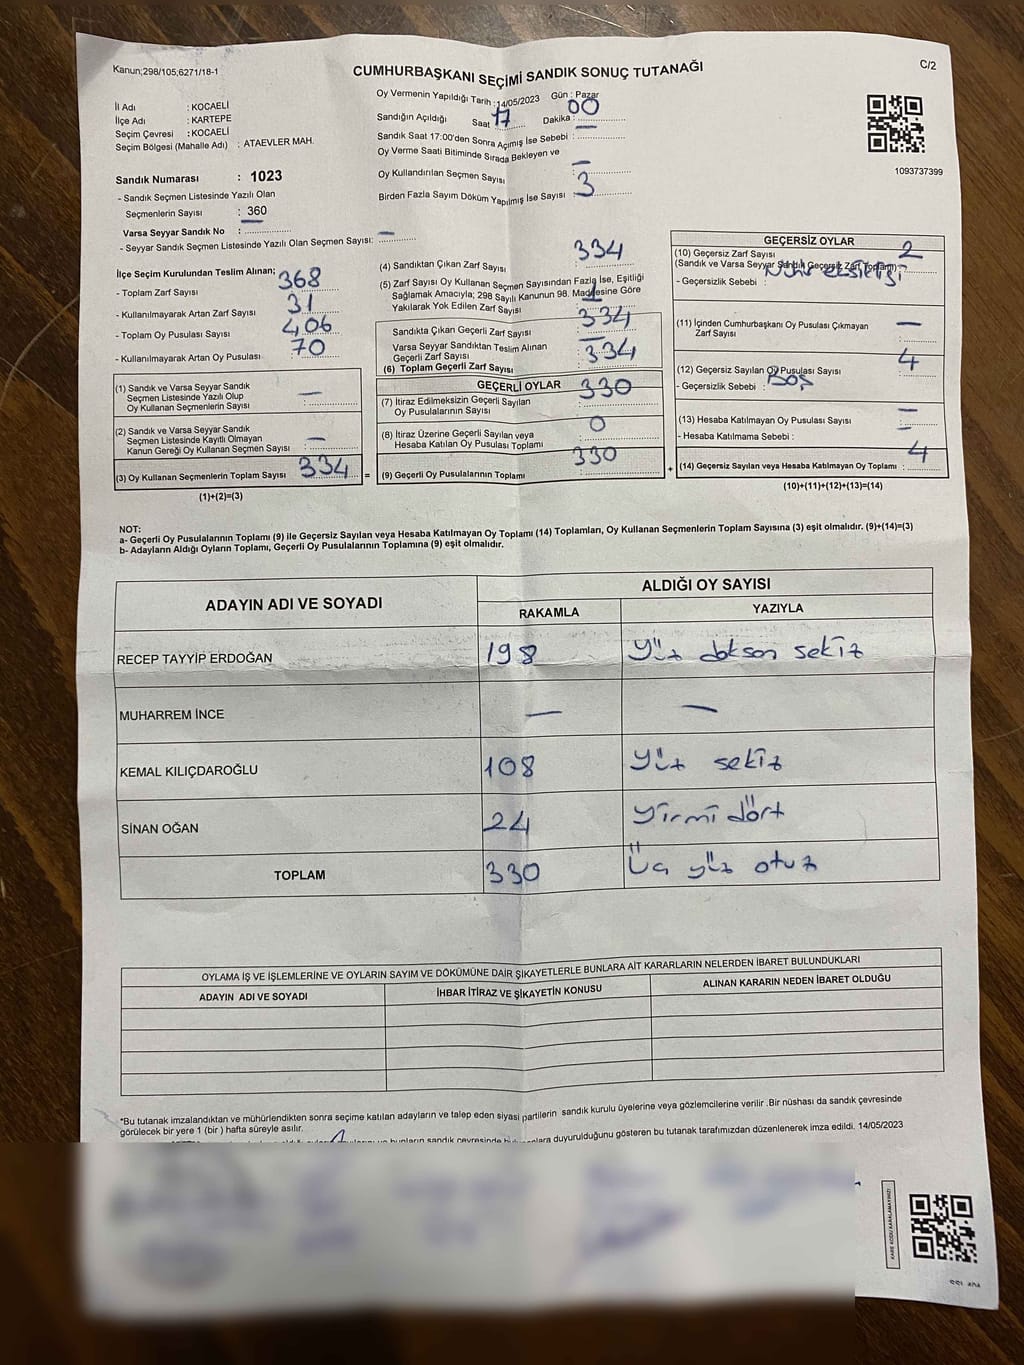 Kanun;298/105;6271/18-1
CUMHURBAŞKANI SEÇİMİ SANDIK SONUÇ TUTANAĞI
C/2
İl Adı : KOCAELİ
İlçe Adı : KARTEPE
Seçim Çevresi : KOCAELİ
Seçim Bölgesi (Mahalle Adı) : ATAEVLER MAH.
Sandık Numarası : 1023
- Sandık Seçmen Listesinde Yazılı Olan
Seçmenlerin Sayısı : 360
Varsa Seyyar Sandık No : —
- Seyyar Sandık Seçmen Listesinde Yazılı Olan Seçmen Sayısı: —
Oy Vermenin Yapıldığı Tarih :14/05/2023 Gün : Pazar
Sandığın Açıldığı Saat 17 Dakika : 00
Sandık Saat 17:00'den Sonra Açımış İse Sebebi : —
Oy Verme Saati Bitiminde Sırada Bekleyen ve
Oy Kullandırılan Seçmen Sayısı : —
Birden Fazla Sayım Döküm Yapılmış İse Sayısı : 3
1093737399
İlçe Seçim Kurulundan Teslim Alınan;
- Toplam Zarf Sayısı : 368
- Kullanılmayarak Artan Zarf Sayısı : 31
- Toplam Oy Pusulası Sayısı : 406
- Kullanılmayarak Artan Oy Pusulası : 70
(1) Sandık ve Varsa Seyyar Sandık
Seçmen Listesinde Yazılı Olup
Oy Kullanan Seçmenlerin Sayısı : —
(2) Sandık ve Varsa Seyyar Sandık
Seçmen Listesinde Kayıtlı Olmayan
Kanun Gereği Oy Kullanan Seçmen Sayısı : —
(3) Oy Kullanan Seçmenlerin Toplam Sayısı : 334 =
(1)+(2)=(3)
(4) Sandıktan Çıkan Zarf Sayısı : 334
(5) Zarf Sayısı Oy Kullanan Seçmen Sayısından Fazla İse, Eşitliği
Sağlamak Amacıyla; 298 Sayılı Kanunun 98. Maddesine Göre
Yakılarak Yok Edilen Zarf Sayısı
Sandıkta Çıkan Geçerli Zarf Sayısı : 334
Varsa Seyyar Sandıktan Teslim Alınan
Geçerli Zarf Sayısı : —
(6) Toplam Geçerli Zarf Sayısı : 334
GEÇERLİ OYLAR
(7) İtiraz Edilmeksizin Geçerli Sayılan
Oy Pusulalarının Sayısı : 330
(8) İtiraz Üzerine Geçerli Sayılan veya
Hesaba Katılan Oy Pusulası Toplamı : 0
(9) Geçerli Oy Pusulalarının Toplamı : 330 +
GEÇERSİZ OYLAR
(10) Geçersiz Zarf Sayısı : 2
(Sandık ve Varsa Seyyar Sandık Geçersiz Zarf Toplamı)
- Geçersizlik Sebebi : Mühür eksikliği
(11) İçinden Cumhurbaşkanı Oy Pusulası Çıkmayan
Zarf Sayısı : —
(12) Geçersiz Sayılan Oy Pusulası Sayısı : 4
- Geçersizlik Sebebi : BOŞ
(13) Hesaba Katılmayan Oy Pusulası Sayısı : —
- Hesaba Katılmama Sebebi : —
(14) Geçersiz Sayılan veya Hesaba Katılmayan Oy Toplamı : 4
(10)+(11)+(12)+(13)=(14)
NOT:
a- Geçerli Oy Pusulalarının Toplamı (9) ile Geçersiz Sayılan veya Hesaba Katılmayan Oy Toplamı (14) Toplamları, Oy Kullanan Seçmenlerin Toplam Sayısına (3) eşit olmalıdır. (9)+(14)=(3)
b- Adayların Aldığı Oyların Toplamı, Geçerli Oy Pusulalarının Toplamına (9) eşit olmalıdır.
ADAYIN ADI VE SOYADI ALDIĞI OY SAYISI
RAKAMLA YAZIYLA
RECEP TAYYİP ERDOĞAN 198 Yüz doksan sekiz
MUHARREM İNCE — —
KEMAL KILIÇDAROĞLU 108 Yüz sekiz
SİNAN OĞAN 24 Yirmi dört
TOPLAM 330 Üç yüz otuz
OYLAMA İŞ VE İŞLEMLERİNE VE OYLARIN SAYIM VE DÖKÜMÜNE DAİR ŞİKAYETLERLE BUNLARA AİT KARARLARIN NELERDEN İBARET BULUNDUKLARI
ADAYIN ADI VE SOYADI İHBAR İTİRAZ VE ŞİKAYETİN KONUSU ALINAN KARARIN NEDEN İBARET OLDUĞU
*Bu tutanak imzalandıktan ve mühürlendikten sonra seçime katılan adayların ve talep eden siyasi partilerin sandık kurulu üyelerine veya gözlemcilerine verilir .Bir nüshası da sandık çevresinde
görülecek bir yere 1 (bir ) hafta süreyle asılır.
duyurulduğunu gösteren bu tutanak tarafımızdan düzenlenerek imza edildi. 14/05/2023